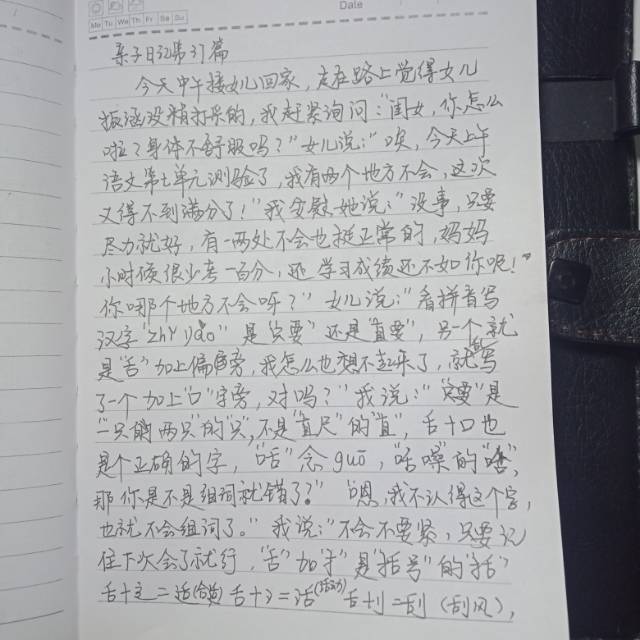 Date
Mo Tu We Th Fr Sa Su
亲子日记第37篇
今天中午接女儿回家，走在路上觉得女儿
没精打采的，我赶紧询问：“闺女，你怎么
啦？身体不舒服吗？”女儿说：“唉，今天上午
语文第七单元测验了，我有两个地方不会，这次
又得不到满分了！”我安慰她说：“没事，只要
尽力就好，有一两处不会也挺正常的，妈妈
小时候很少考一百分，还学习成绩还不如你呢！”
你哪个地方不会呀？”女儿说：“看拼音写
汉字“zhǐ yào”是“只要”还是“直要”，另一个就
是“舌”加上偏旁，我怎么也想不起来了，就乱写
了一个加上“口”字旁，对吗？”我说：““只要”是
“一只两只”的“只”，不是“直尺”的“直”，舌+口也
是个正确的字，“咶”念guō，“咶噪”的“咶”，
那你是不是组词就错了？”“嗯，我不认得这个字，
也就不会组词了。”我说：“不会不要紧，只要记
住下次会了就行，“舌”加“扌”是“括号”的“括”
舌+辶=适(合适) 舌+氵=活(活动) 舌+刂=刮（刮风），